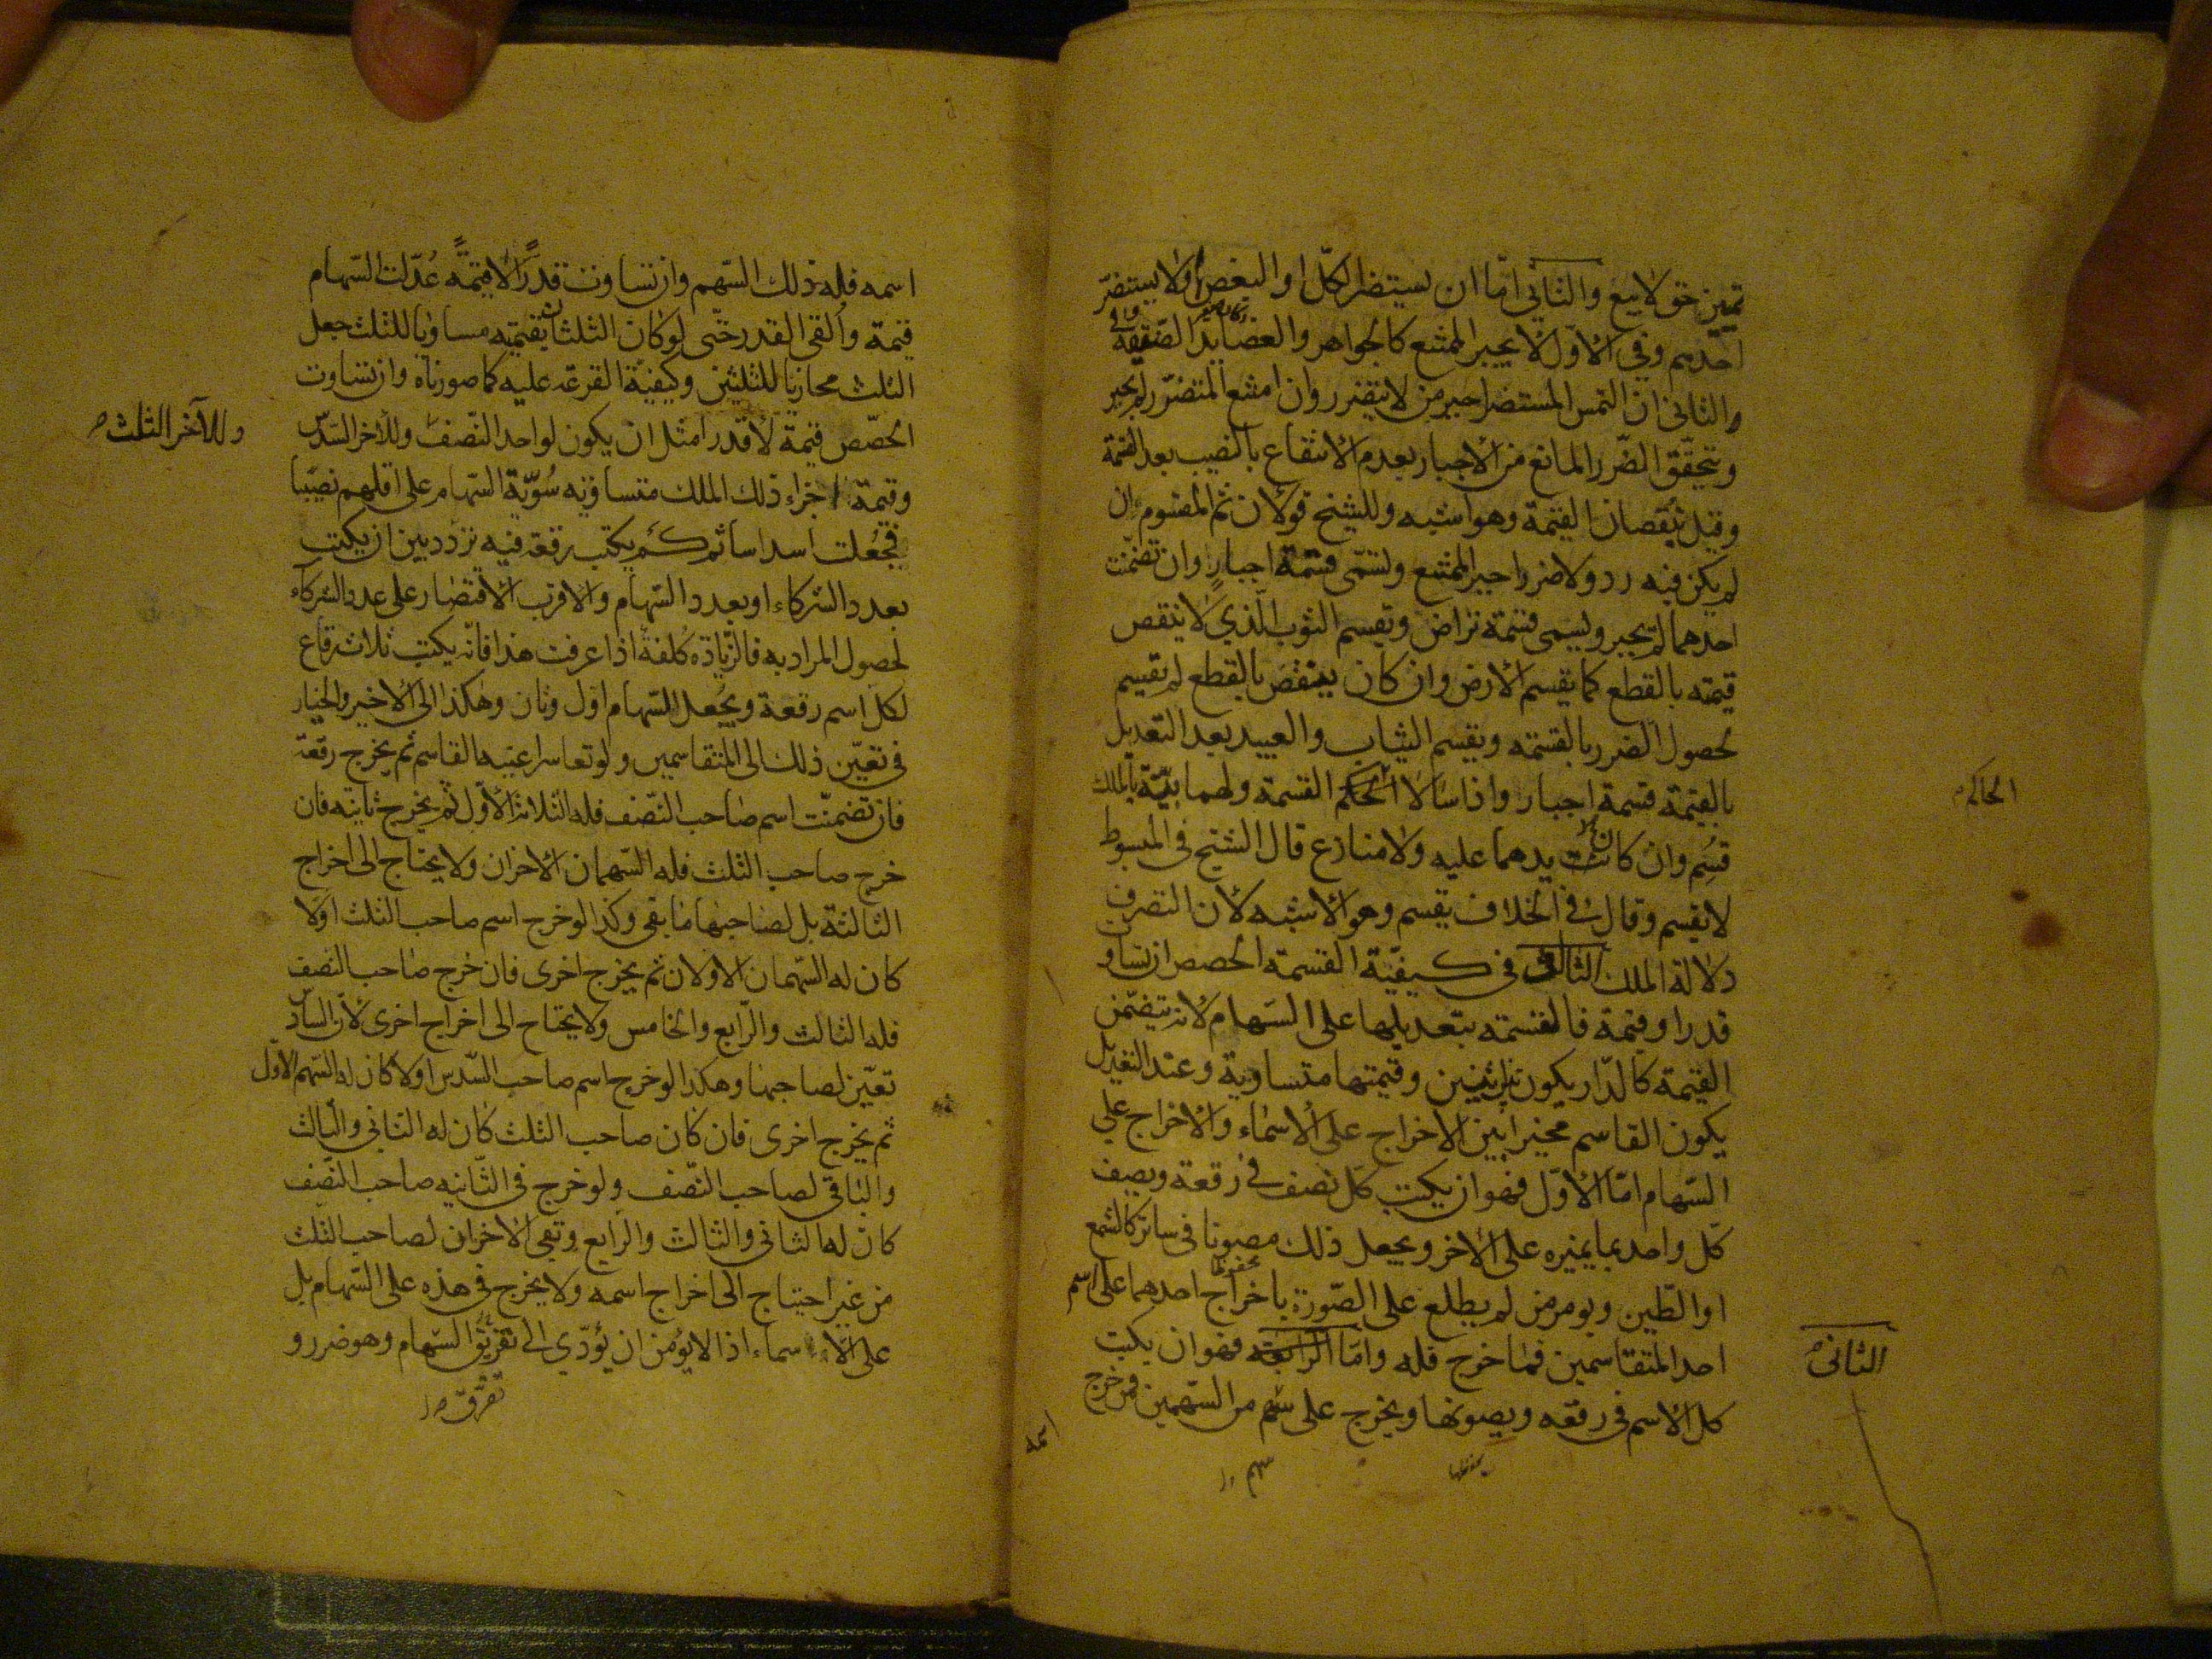 تمييز حق لا بيع والثاني اما ان يستضر الكل او البعض او لا يستضر
احدهم وفي الاول لا يجبر الممتنع كالجواهر والعضايد الضيقة
والثاني ان التمس المستضر اجبر من لا يتضرر وان امتنع المتضرر لم يجبر
ويتحقق الضرر المانع من الاجبار بعدم الانتفاع بالنصيب بعد القسمة
وقيل بنقصان القيمة وهو اشبه وللشيخ قولان ثم المقسوم ان
لم يكن فيه رد ولا ضرر اجبر الممتنع وتسمى قسمة اجبار وان تضمنت
احدهما لم يجبر ويسمى قسمة تراض ويقسم الثوب الذي لا ينقص
قيمته بالقطع كما يقسم الارض وان كان ينقص بالقطع لم يقسم
لحصول الضرر بالقسمه ويقسم الثياب والعبيد بعد التعديل
بالقيمة قسمة اجبار واذا سالا الحكم القسمة ولهما بينة بالملك
الحاكم
قسم وان كانت يدهما عليه ولا منازع قال الشيخ في المبسوط
لا يقسم وقال في الخلاف يقسم وهو الاشبه لان التصرف
دلالة الملك الثالث في كيفية القسمة الحصص ان تساو
قدرا وقيمة فالقسمه بتعديلها على السهام لانه يتضمن
القيمة كالدار يكون بين اثنين وقيمتها متساوية وعند التعديل
يكون القاسم مخيرا بين الاخراج على الاسماء والاخراج على
السهام اما الاول فهو ان يكتب كل نصف في رقعة ويصف
كل واحد بما يميزه على الاخر ويجعل ذلك مصونا في ساتر كالشمع
او الطين ويومر من لم يطلع على الصورة باخراج احدهما على اسم
احد المتقاسمين فما خرج فله واما الرابعة فهو ان يكتب
الثاني
كل الاسم في رقعه ويصونها ويخرج على سهم من السهمين فمن خرج
سهم
اسمه
اسمه فله ذلك السهم وان تساوت قدرا لا قيمة عدلت السهام
قيمة والقى القدر حتى لو كان الثلثان بقيمته مساويا للثلث جعل
الثلث محازيا للثلثين وكيفية القرعة عليه كما صورناه وان تساوت
الحصص قيمة لا قدرا مثل ان يكون لواحد النصف وللاخر السدس
وللآخر الثلث
وقيمة اجزاء ذلك الملك متساويه سوية السهام على اقلهم نصيبا
فجعلت اسداسا ثم كم يكتب رقعة فيه تردد بين ان يكتب
بعدد الشركاء او بعدد السهام والاقرب الاقتصار على عدد الشركاء
لحصول المراد به فالزيادة كلفة اذا عرفت هذا فانه يكتب ثلاث رقاع
لكل اسم رقعة ويجعل للسهام اول وثان وهكذا الى الاخير والخيار
في تعيين ذلك الى المتقاسمين ولو تعاسرا عينه القاسم ثم يخرج رقعة
فان تضمنت اسم صاحب النصف فله الثلاث الاول ثم يخرج ثانيه فان
خرج صاحب الثلث فله السهمان الاخران ولا يحتاج الى اخراج
الثالثة بل لصاحبها ما بقى وكذا لو خرج اسم صاحب الثلث اولا
كان له السهمان الاولان ثم يخرج اخرى فان خرج صاحب النصف
فله الثالث والرابع والخامس ولا يحتاج الى اخراج اخرى لان السادس
تعين لصاحبها وهكذا لو خرج اسم صاحب السدس اولا كان له السهم الاول
ثم يخرج اخرى فان كان صاحب الثلث كان له الثاني والثالث
والباقي لصاحب النصف ولو خرج في الثانيه صاحب النصف
كان له الثاني والثالث والرابع وبقى الاخران لصاحب الثلث
من غير احتياج الى اخراج اسمه ولا يخرج في هذه على السهام بل
على الاسماء اذا لا يؤمن ان يؤدي الى تفريق السهام وهو ضرر و
تفرق